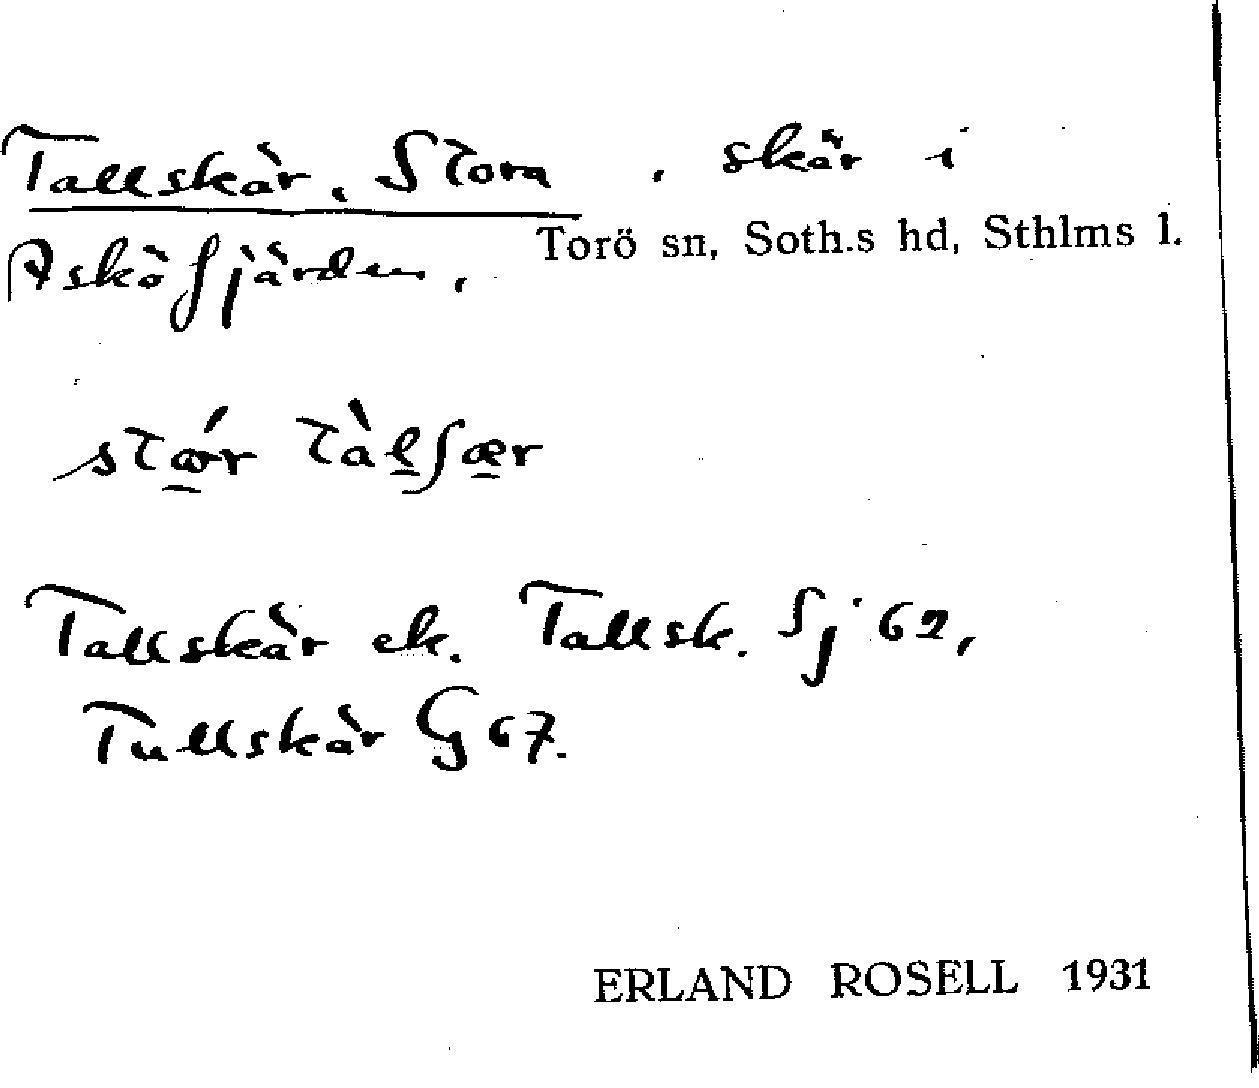 Tallskär, Stora, skär i
Asköfjärden. Torö sn, Soth.s hd, Sthlms l.
Tallskär ek. Tallsk. Sj 62,
Tullskär G 67.
ERLAND ROSELL 1931